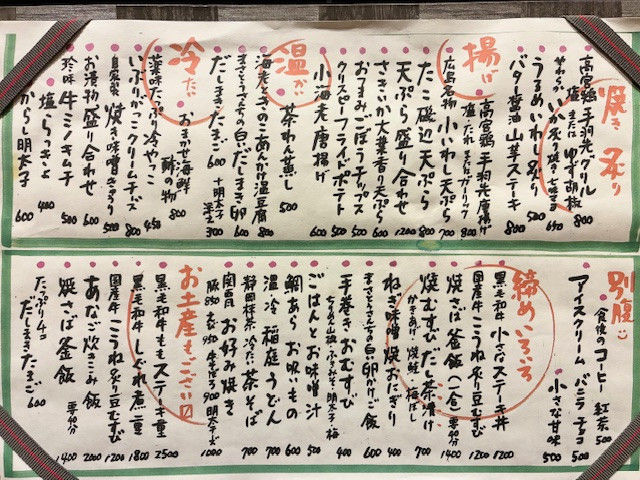 焼き 炙り
高宮鶏 手羽先グリル
塩 または ゆず胡椒 600
やわらか いか炙り焼き 七味マヨ 650
うるめいわし 炙り 500
バター醤油 山芋ステーキ 800
揚げ
高宮鶏 手羽先唐揚げ
塩・たれ またはガーリック 800
広島名物 小いわし天ぷら 700
たこ 磯辺 天ぷら 800
天ぷら 盛り合わせ 1200
さきいか大葉香り天ぷら 600
おつまみごぼうチップス 500
クリスピーフライドポテト 500
小海老 唐揚げ 600
温かい
茶わん蒸し 500
海老ときのこあんかけ温豆腐 800
まさとうさんちの白いだしまき卵 600
だしまきたまご 600 +明太子
冷たい
おまかせ海鮮
酢の物 800
薬味たっぷり冷やっこ 450
いぶりがっこクリームチーズ 800
自家製 焼き味噌きゅうり 500
お漬物 盛り合わせ 600
珍味 牛ミノキムチ 500
塩らっきょ 400
からし明太子 600
別腹
食後のコーヒー 紅茶 500
アイスクリーム バニラ チョコ 500
小さな甘味 500
締めいろいろ
黒毛和牛 小さなステーキ丼 1200
国産牛 こうね炙り豆むすび 1200
焼さば 釜飯(一合) 要40分 1400
焼むすび だし茶漬け 700
かきあげ・焼鮭・梅ぼし
ねぎ味噌 焼おにぎり 400
まさとうさんちの白い卵かけご飯 600
手巻き おむすび 400
ちりめん山椒・ふきみそ・明太子・梅
ごはんと お味噌汁 500
鯛あら お吸いもの 600
温冷 稲庭うどん 700
静岡抹茶 冷たい茶そば 700
関西風 お好み焼き 1000
豚850 えび950 牛すじねぎ900 明太チーズ
お土産もございます
黒毛和牛 ももステーキ重 2500
黒毛和牛 しぐれ煮重 1800
国産牛 こうね炙り豆むすび 1200
あなご炊きこみ飯 2000
焼さば 釜飯 要40分 1400
たっぷり4コ
だしまきたまご 600